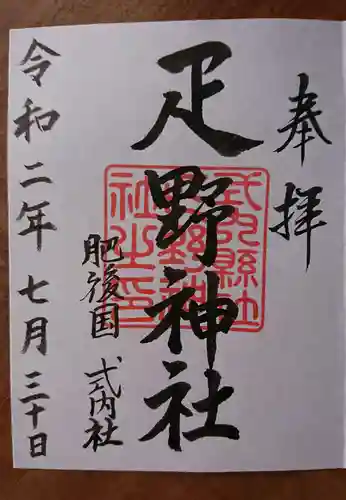 奉拝
疋野神社
肥後国 式内社
令和二年 七月 三十日